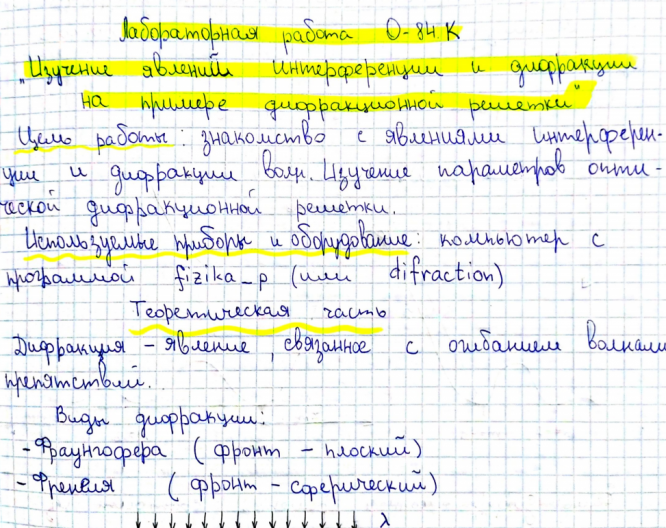 Лабораторная работа О-84 К
"Изучение явлений интерференции и дифракции
на примере дифракционной решетки"
Цель работы: знакомство с явлениями интерферен-
ции и дифракции волн. Изучение параметров опти-
ческой дифракционной решетки.
Используемые приборы и оборудование: компьютер с
программой fizika_p (или difraction)
Теоретическая часть
Дифракция – явление, связанное с огибанием волнами
препятствий.
Виды дифракции:
- Фраунгофера (фронт – плоский)
- Френеля (фронт – сферический)
λ